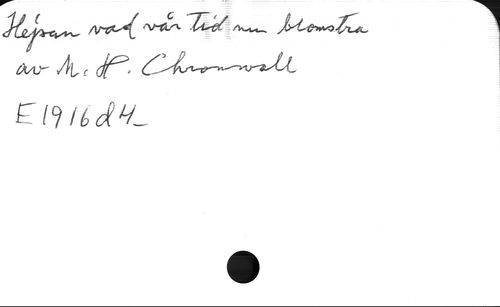 Hejsan vad vår tid nu blomstra
av M. H. Chronwall
E 1916 d 4_